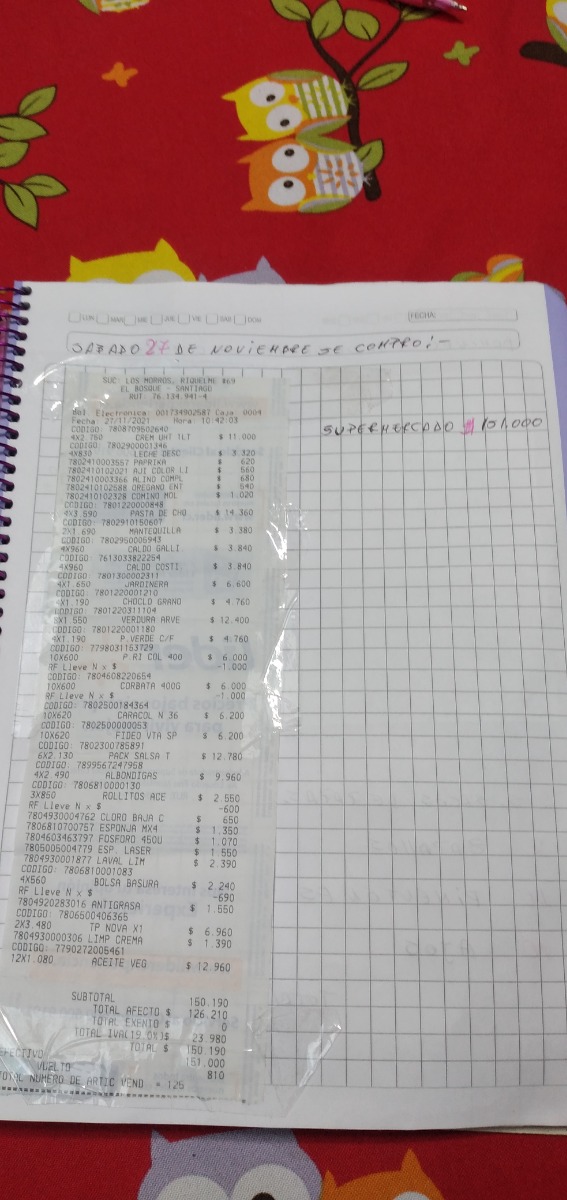 LUN MAR MIE JUE VIE SAB DOM
FECHA:
SABADO 27 DE NOVIEMBRE SE COMPRO:-
SUPERMERCADO $ 151.000
SUC: LOS MORROS, RIQUELME 869
EL BOSQUE - SANTIAGO
RUT: 76.134.941-4
Bol. Electronica: 001734902587 Caja: 0004
Fecha: 27/11/2021 Hora: 10:42:03
CODIGO: 7808709502640
4X2.750 CREM UHT 1LT $ 11.000
CODIGO: 7802900001346
4X830 LECHE DESC $ 3.320
7802410003557 PAPRIKA $ 620
7802410102021 AJI COLOR LI $ 560
7802410003366 ALINO COMPL $ 680
7802410102588 OREGANO ENT $ 540
7802410102328 COMINO MOL $ 1.020
CODIGO: 7801220000848
4X3.590 PASTA DE CHO $ 14.360
CODIGO: 7802910150607
2X1.690 MANTEQUILLA $ 3.380
CODIGO: 7802950005943
4X960 CALDO GALLI $ 3.840
CODIGO: 7613033822254
4X960 CALDO COSTI $ 3.840
CODIGO: 7801300002311
4X1.650 JARDINERA $ 6.600
CODIGO: 7801220001210
4X1.190 CHOCLO GRANO $ 4.760
CODIGO: 7801220311104
8X1.550 VERDURA ARVE $ 12.400
CODIGO: 7801220001180
4X1.190 P.VERDE C/F $ 4.760
CODIGO: 7798031153729
10X600 P.RI COL 400 $ 6.000
RF Lleve N x $ -1.000
CODIGO: 7804608220654
10X600 CORBATA 400G $ 6.000
RF Lleve N x $ -1.000
CODIGO: 7802500184364
10X620 CARACOL N 36 $ 6.200
CODIGO: 7802500000053
10X620 FIDEO VTA SP $ 6.200
CODIGO: 7802300785891
6X2.130 PACK SALSA T $ 12.780
CODIGO: 7899567247958
4X2.490 ALBONDIGAS $ 9.960
CODIGO: 7806810000130
3X850 ROLLITOS ACE $ 2.550
RF Lleve N x $ -600
7804930004762 CLORO BAJA C $ 650
7806810700757 ESPONJA MX4 $ 1.350
7804603463797 FOSFORO 450U $ 1.070
7805005004779 ESP. LASER $ 1.550
7804930001877 LAVAL LIM $ 2.390
CODIGO: 7806810001083
4X560 BOLSA BASURA $ 2.240
RF Lleve N x $ -690
7804920283016 ANTIGRASA $ 1.550
CODIGO: 7806500406365
2X3.480 TP NOVA X1 $ 6.960
7804930000306 LIMP CREMA $ 1.390
CODIGO: 7790272005461
12X1.080 ACEITE VEG $ 12.960
SUBTOTAL 150.190
TOTAL AFECTO $ 126.210
TOTAL EXENTO $ 0
TOTAL IVA(19.0%)$ 23.980
TOTAL $ 150.190
EFECTIVO 151.000
VUELTO 810
TOTAL NUMERO DE ARTIC VEND = 125